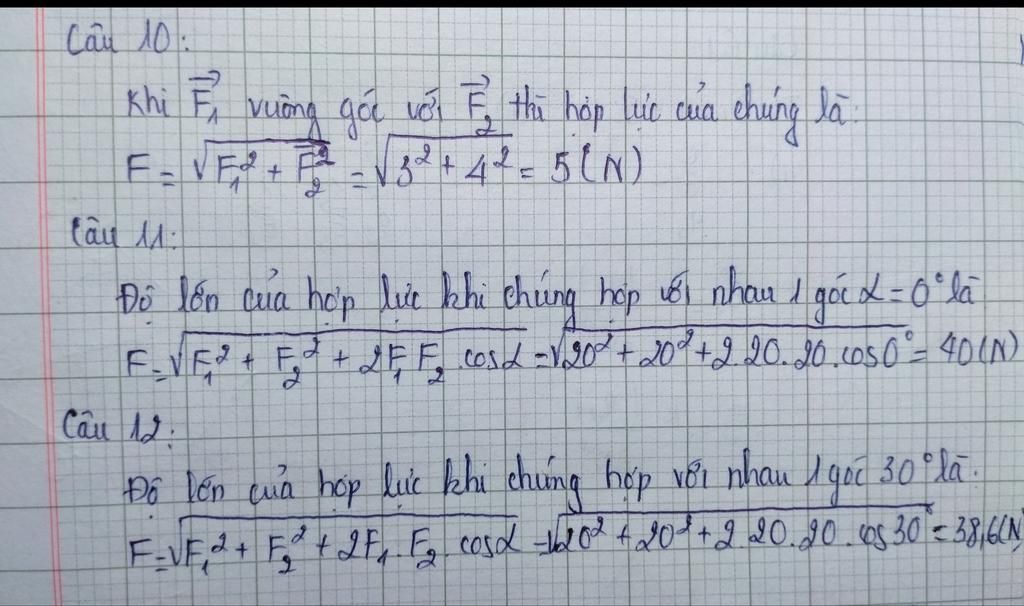 Câu 10:
Khi F₁ vuông góc với F₂ thì hợp lực của chúng là:
F = √(F₁² + F₂²) = √(3² + 4²) = 5 (N)
Câu 11:
Độ lớn của hợp lực khi chúng hợp với nhau 1 góc α = 0° là
F = √(F₁² + F₂² + 2F₁F₂.cosα) = √(20² + 20² + 2.20.20.cos0°) = 40(N)
Câu 12:
Độ lớn của hợp lực khi chúng hợp với nhau 1 góc 30° là:
F = √(F₁² + F₂² + 2F₁.F₂.cosα) = √(20² + 20² + 2.20.20.cos30°) = 38,6(N)